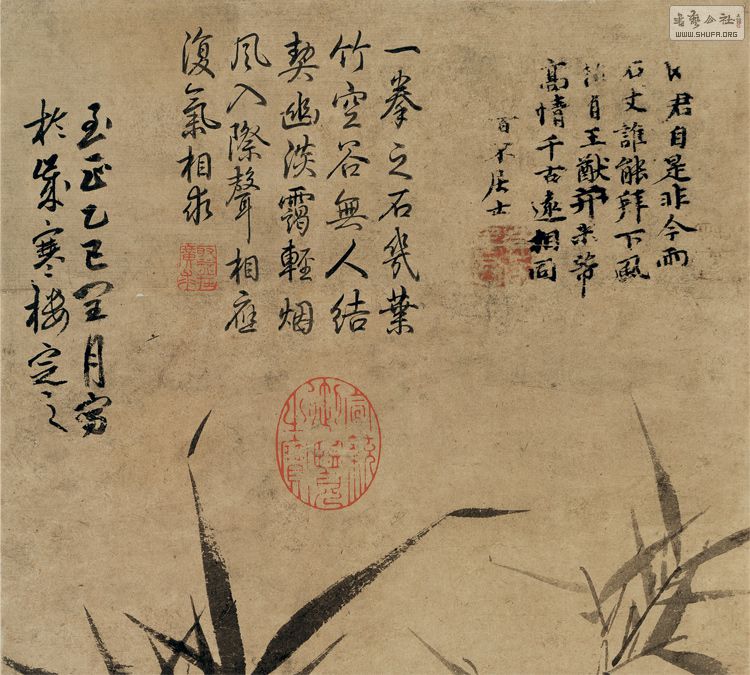 书艺公社
WWW.SHUFA.ORG
君自是非今而
石丈誰能拜下風
有王猷并米芾
高情千古遠相同
百不居士
一拳之石幾葉
竹空谷無人結
契幽淡靄輕烟
風入際聲相應
復氣相求
至正乙巳月寫
於歲寒樓定之
宣統御覽之寶